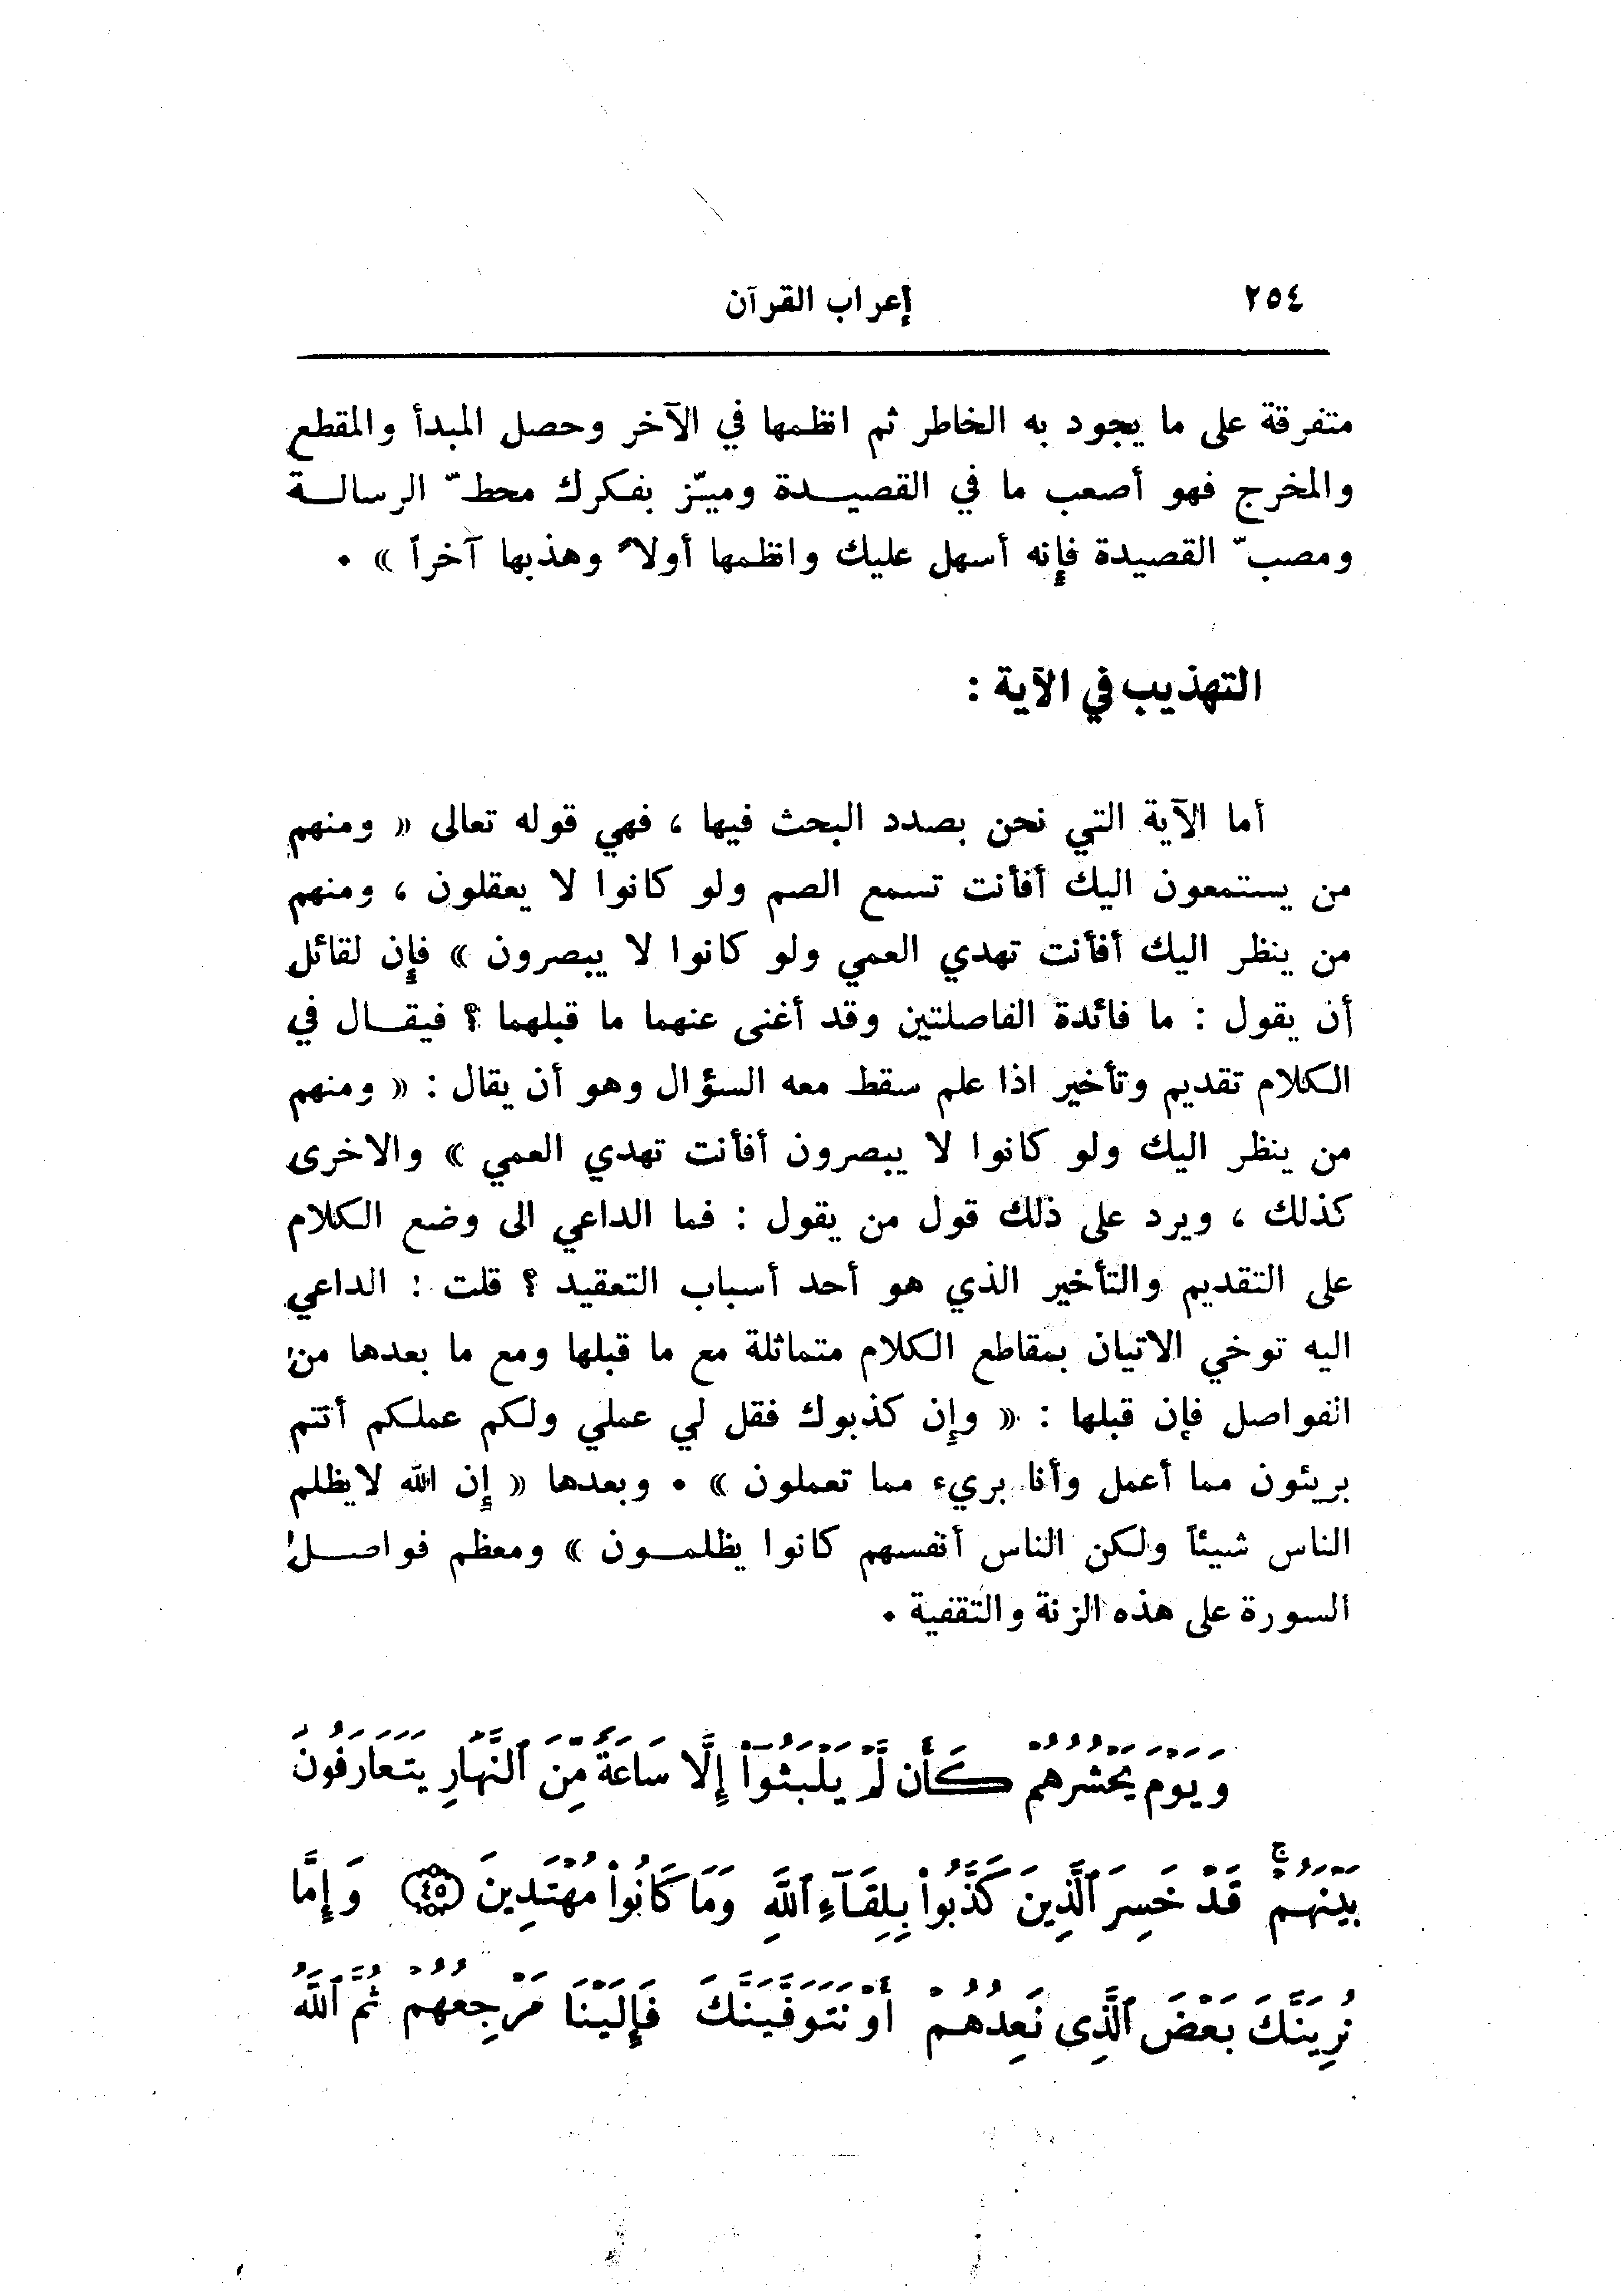 ٢٥٤ إعراب القرآن
متفرقة على ما يجود به الخاطر ثم انظمها في الآخر وحصل المبدأ والمقطع
والمخرج فهو أصعب ما في القصيــدة وميّز بفكرك محطّ الرسالــة
ومصبّ القصيدة فإنه أسهل عليك وانظمها أولاً وهذبها آخراً » ٠
التهذيب في الآية :
أما الآية التي نحن بصدد البحث فيها ، فهي قوله تعالى « ومنهم
من يستمعون اليك أفأنت تسمع الصم ولو كانوا لا يعقلون ، ومنهم
من ينظر اليك أفأنت تهدي العمي ولو كانوا لا يبصرون » فإن لقائل
أن يقول : ما فائدة الفاصلتين وقد أغنى عنهما ما قبلهما ؟ فيقــال في
الكلام تقديم وتأخير اذا علم سقط معه السؤال وهو أن يقال : « ومنهم
من ينظر اليك ولو كانوا لا يبصرون أفأنت تهدي العمي » والاخرى
كذلك ، ويرد على ذلك قول من يقول : فما الداعي الى وضع الكلام
على التقديم والتأخير الذي هو أحد أسباب التعقيد ؟ قلت : الداعي
اليه توخي الاتيان بمقاطع الكلام متماثلة مع ما قبلها ومع ما بعدها من
الفواصل فإن قبلها : « وإن كذبوك فقل لي عملي ولكم عملكم أنتم
بريئون مما أعمل وأنا بريء مما تعملون » ٠ وبعدها « إن الله لا يظلم
الناس شيئاً ولكن الناس أنفسهم كانوا يظلمــون » ومعظم فواصــل
السورة على هذه الزنة والتقفية ٠
وَيَوْمَ يَحْشُرُهُمْ كَأَن لَّمْ يَلْبَثُوٓا۟ إِلَّا سَاعَةً مِّنَ ٱلنَّهَارِ يَتَعَارَفُونَ
بَيْنَهُمْ ۚ قَدْ خَسِرَ ٱلَّذِينَ كَذَّبُوا۟ بِلِقَآءِ ٱللَّهِ وَمَا كَانُوا۟ مُهْتَدِينَ ﴿٤٥﴾ وَإِمَّا
نُرِيَنَّكَ بَعْضَ ٱلَّذِى نَعِدُهُمْ أَوْ نَتَوَفَّيَنَّكَ فَإِلَيْنَا مَرْجِعُهُمْ ثُمَّ ٱللَّهُ